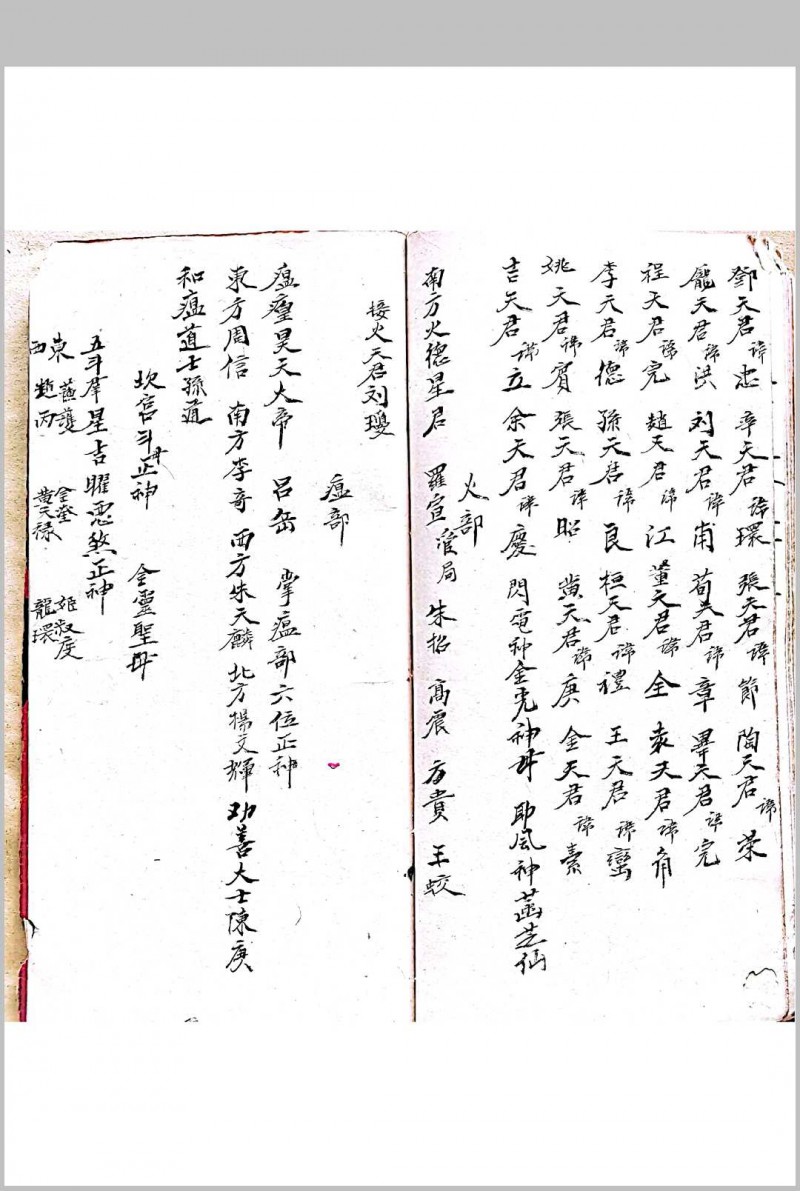 鄧天君諱忠 辛天君諱環 張天君諱節 陶天君諱荣
龐天君諱洪 刘天君諱甫 苟天君諱章 畢天君諱完
程天君諱完 趙天君諱江 董天君諱全 袁天君諱角
李天君諱德 孫天君諱良 桓天君諱禮 王天君諱蠻
姚天君諱賓 張天君諱昭 黄天君諱庚 金天君諱素
吉天君諱立 余天君諱慶 閃電神金光神母 助風神菡芝仙
火部
南方火德星君 羅宣管局 朱招 高震 方貴 王蛟
接火天君刘瓊
瘟部
瘟𤼽昊天大帝 吕岳 掌瘟部六位正神
東方周信 南方李奇 西方朱天麟 北方楊文輝 功善大士陳庚
和瘟道士孫道
坎宫斗母正神 金靈聖母
五斗羣星吉曜惡煞正神
東 蘇護 金奎 姬叔度
西 趙丙 黄天禄 龍環